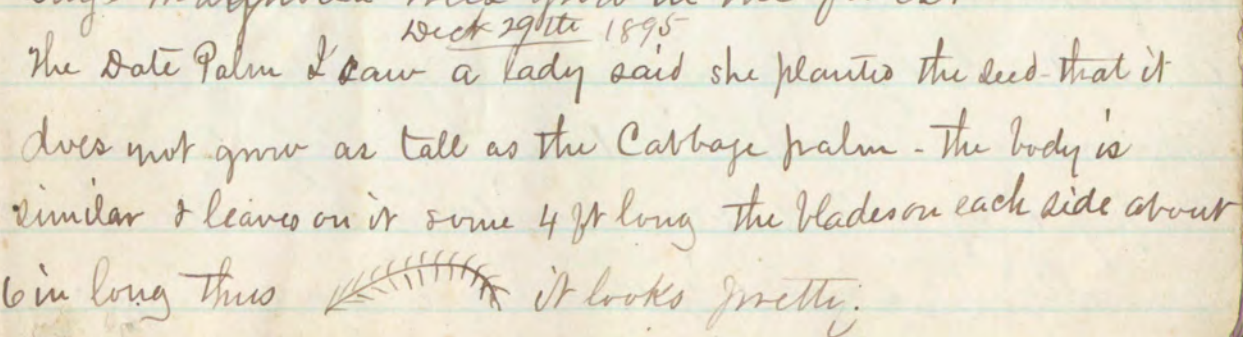 Dec 29th 1895
The Date Palm I saw a lady said she planted the seed - that it
does not grow as tall as the Cabbage palm - the body is
similar & leaves on it some 4 ft long the blades on each side about
6 in long thus it looks pretty.